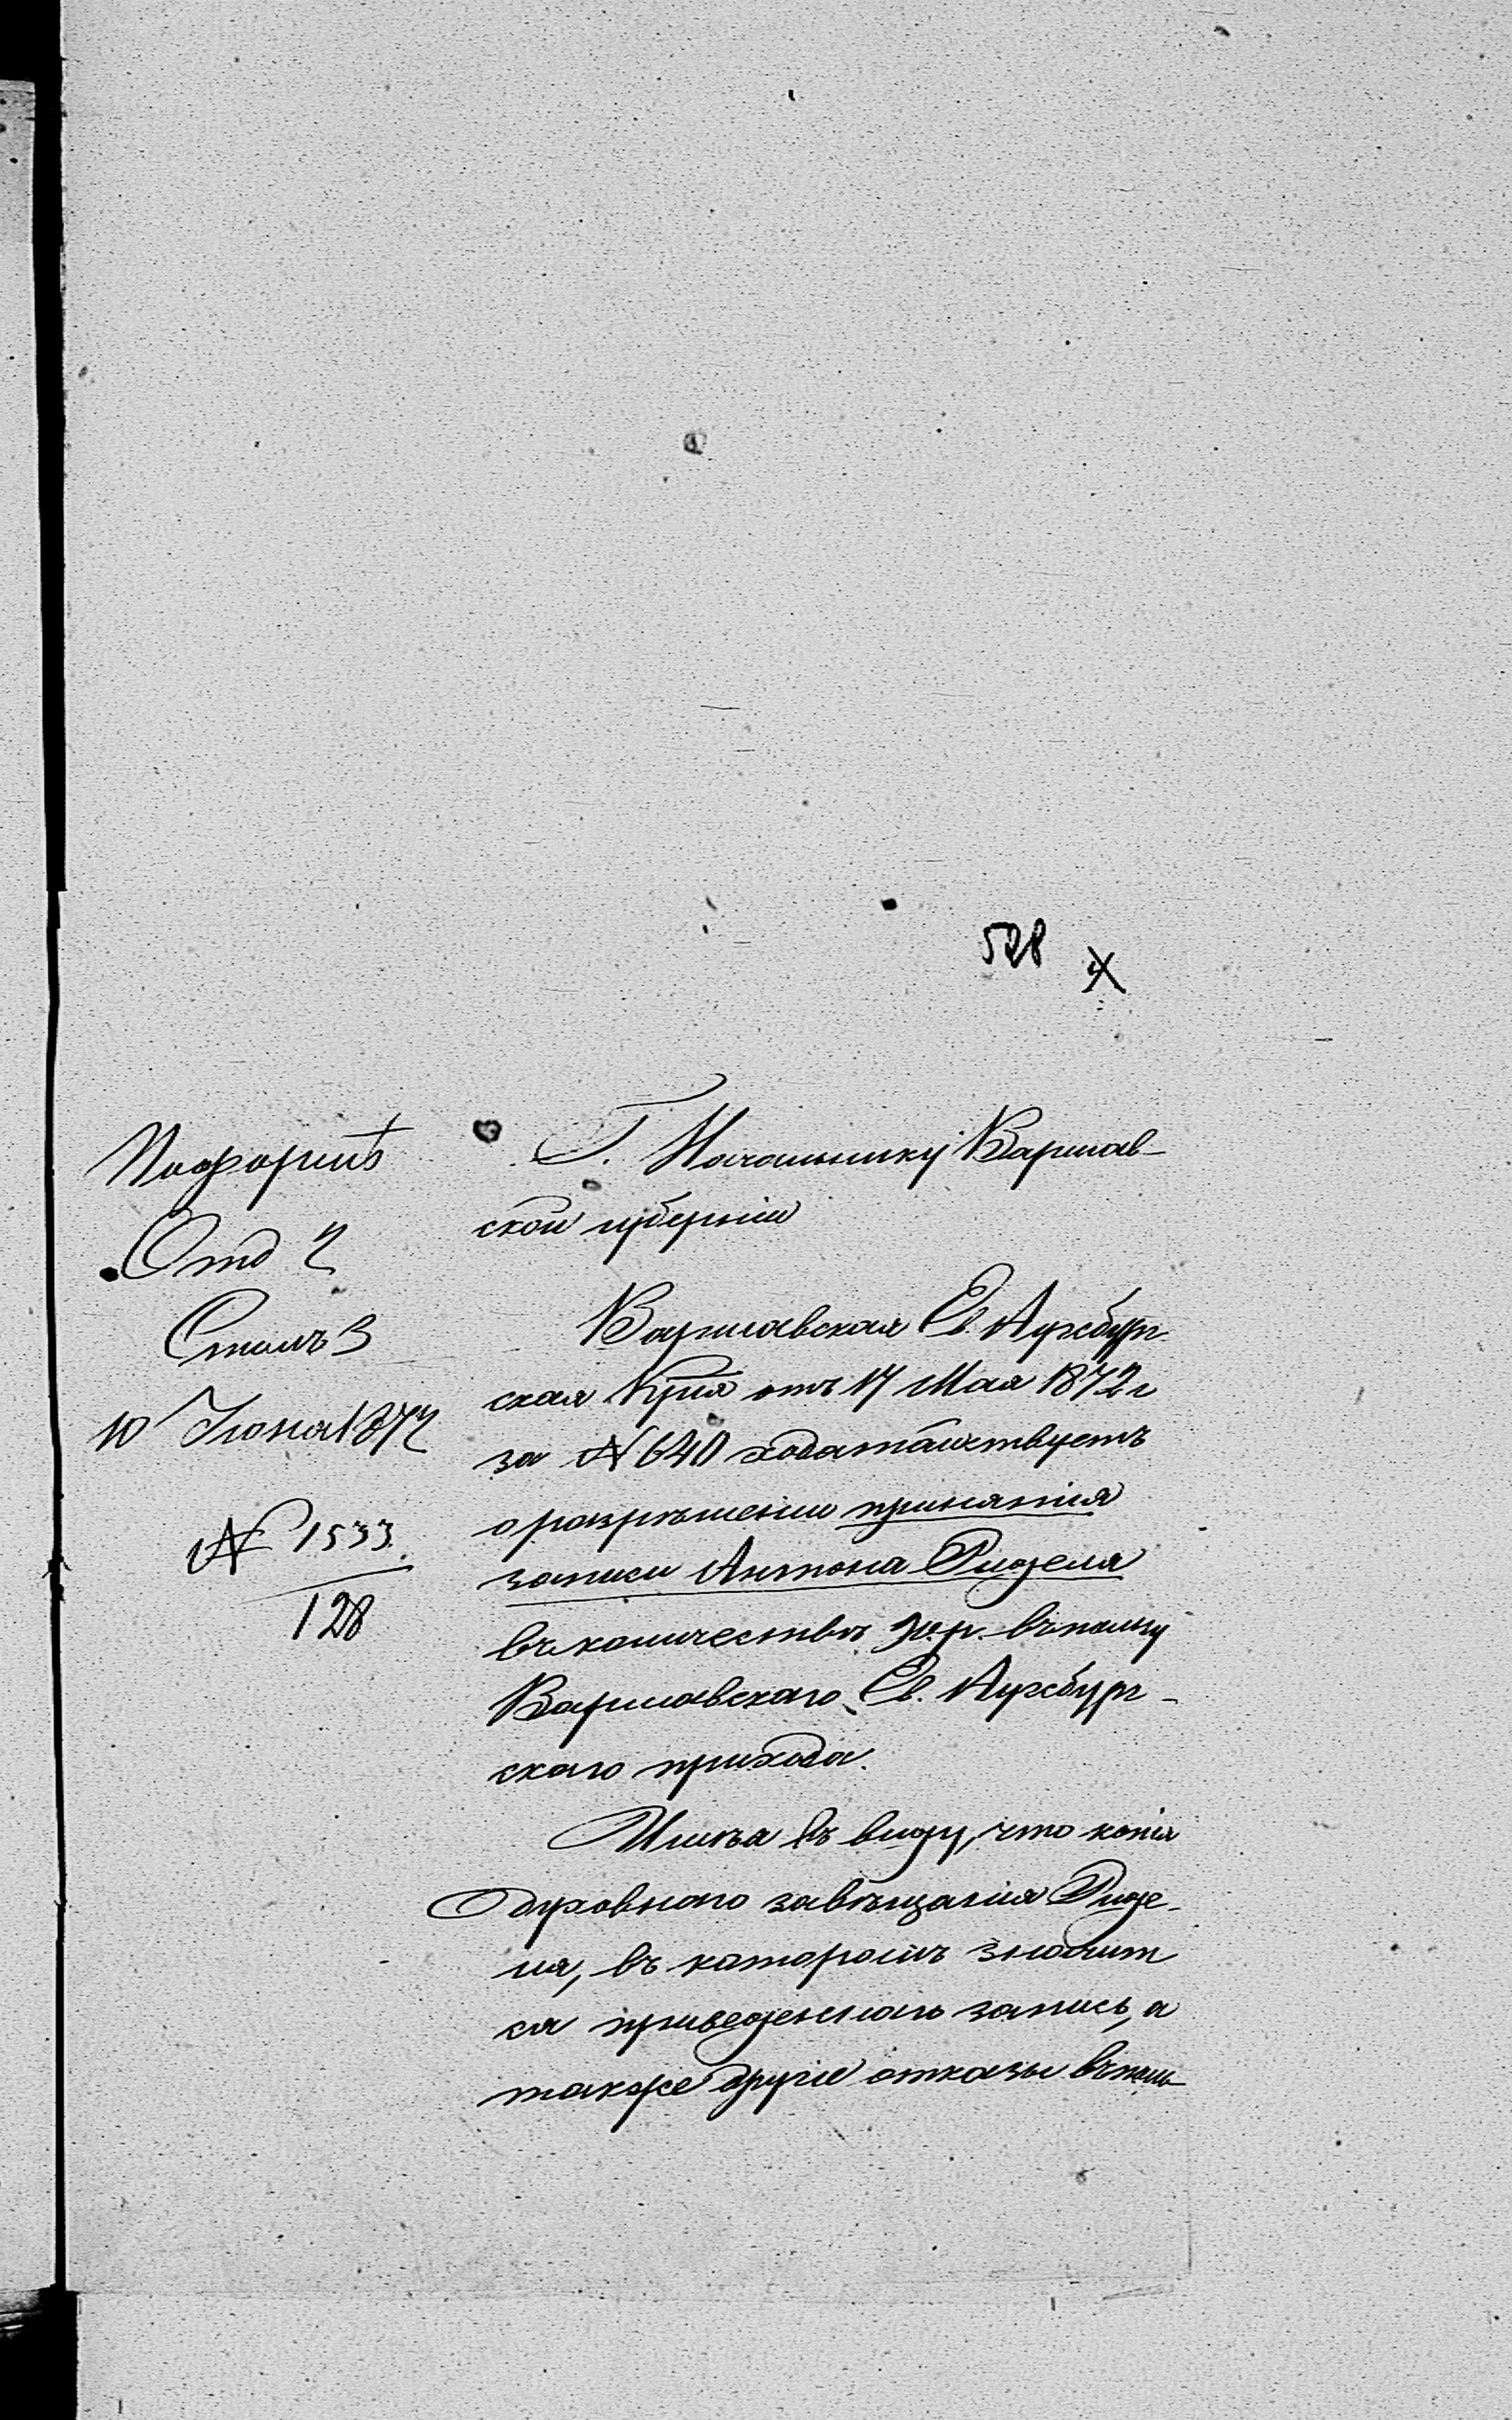 528
По формѣ
Отд 2
Столъ 3
10 Іюня 1872
№ 1533
128
Г. Начальнику Варшав-
ской губерніи
Варшавская Ев. Аугсбург-
ская Кр҃ія отъ 17 Мая 1872 г
за № 640 ходатайствуетъ
о разрѣшеніи принятія
записи Антона Ридзеля
въ количествѣ 30 р. въ пользу
Варшавскаго Ев. Аугсбург-
скаго прихода.
Имѣя въ виду, что копія
духовнаго завѣщанія Ридзе-
ля, въ которомъ значит
ся приведенная запись, а
также другіе отказы въ поль-